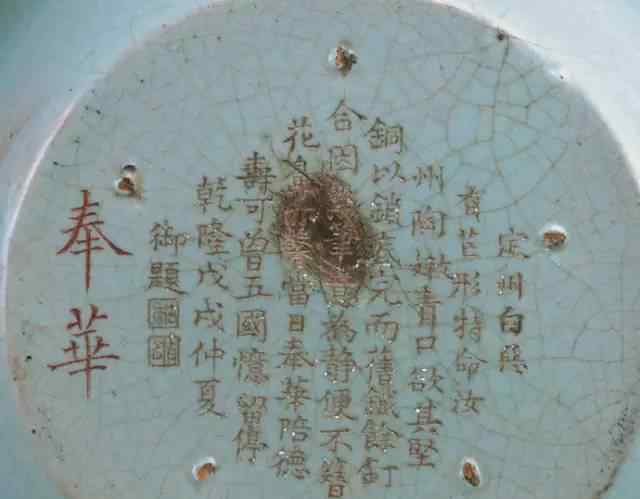 定州白惡
有芒形特命汝
州陶嫩青口欲其堅
銅以鎖底完而舊鐵餘釘
合因筆意為靜便不簪
花馨當日奉華陪德
壽可曽五國憶留停
乾隆戊戌仲夏
御題
奉華